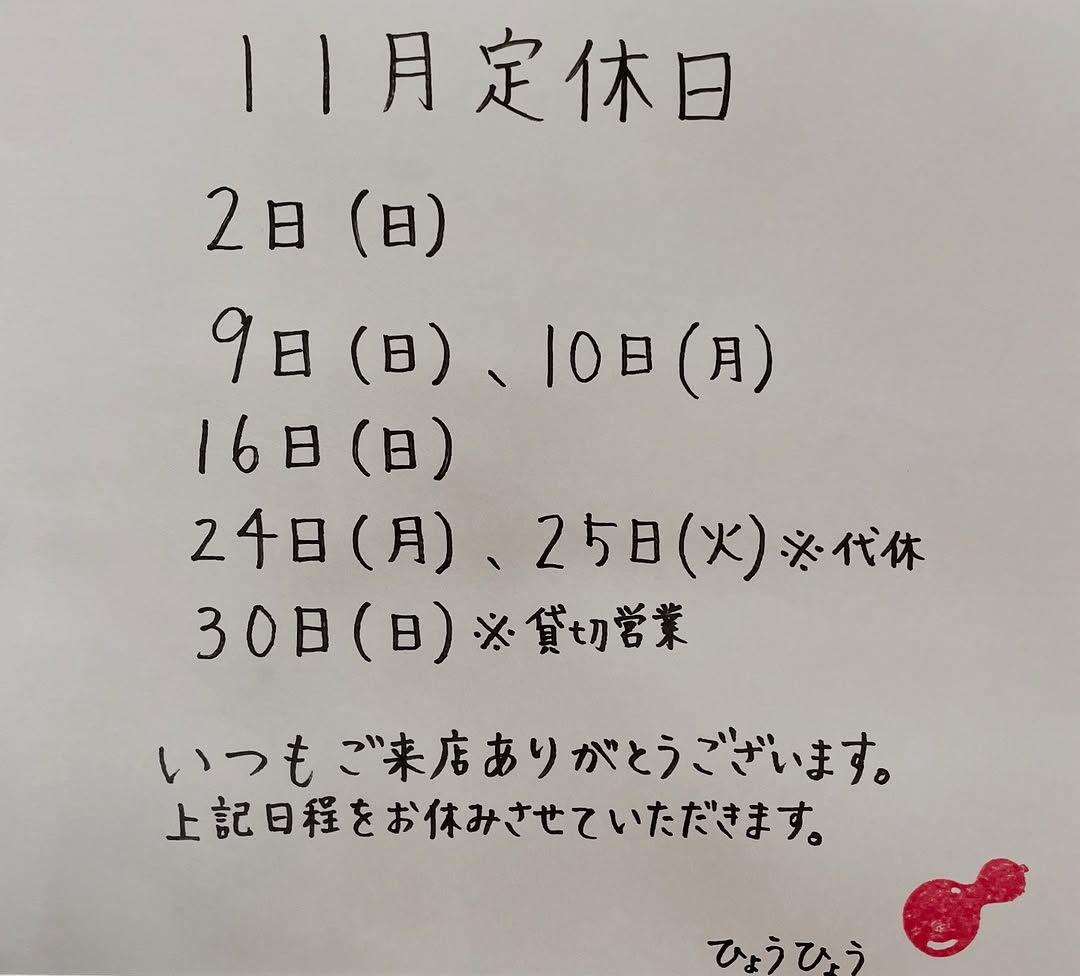 11月定休日
2日(日)
9日(日)、10日(月)
16日(日)
24日(月)、25日(火)※代休
30日(日)※貸切営業
いつもご来店ありがとうございます。
上記日程をお休みさせていただきます。
ひょうひょう